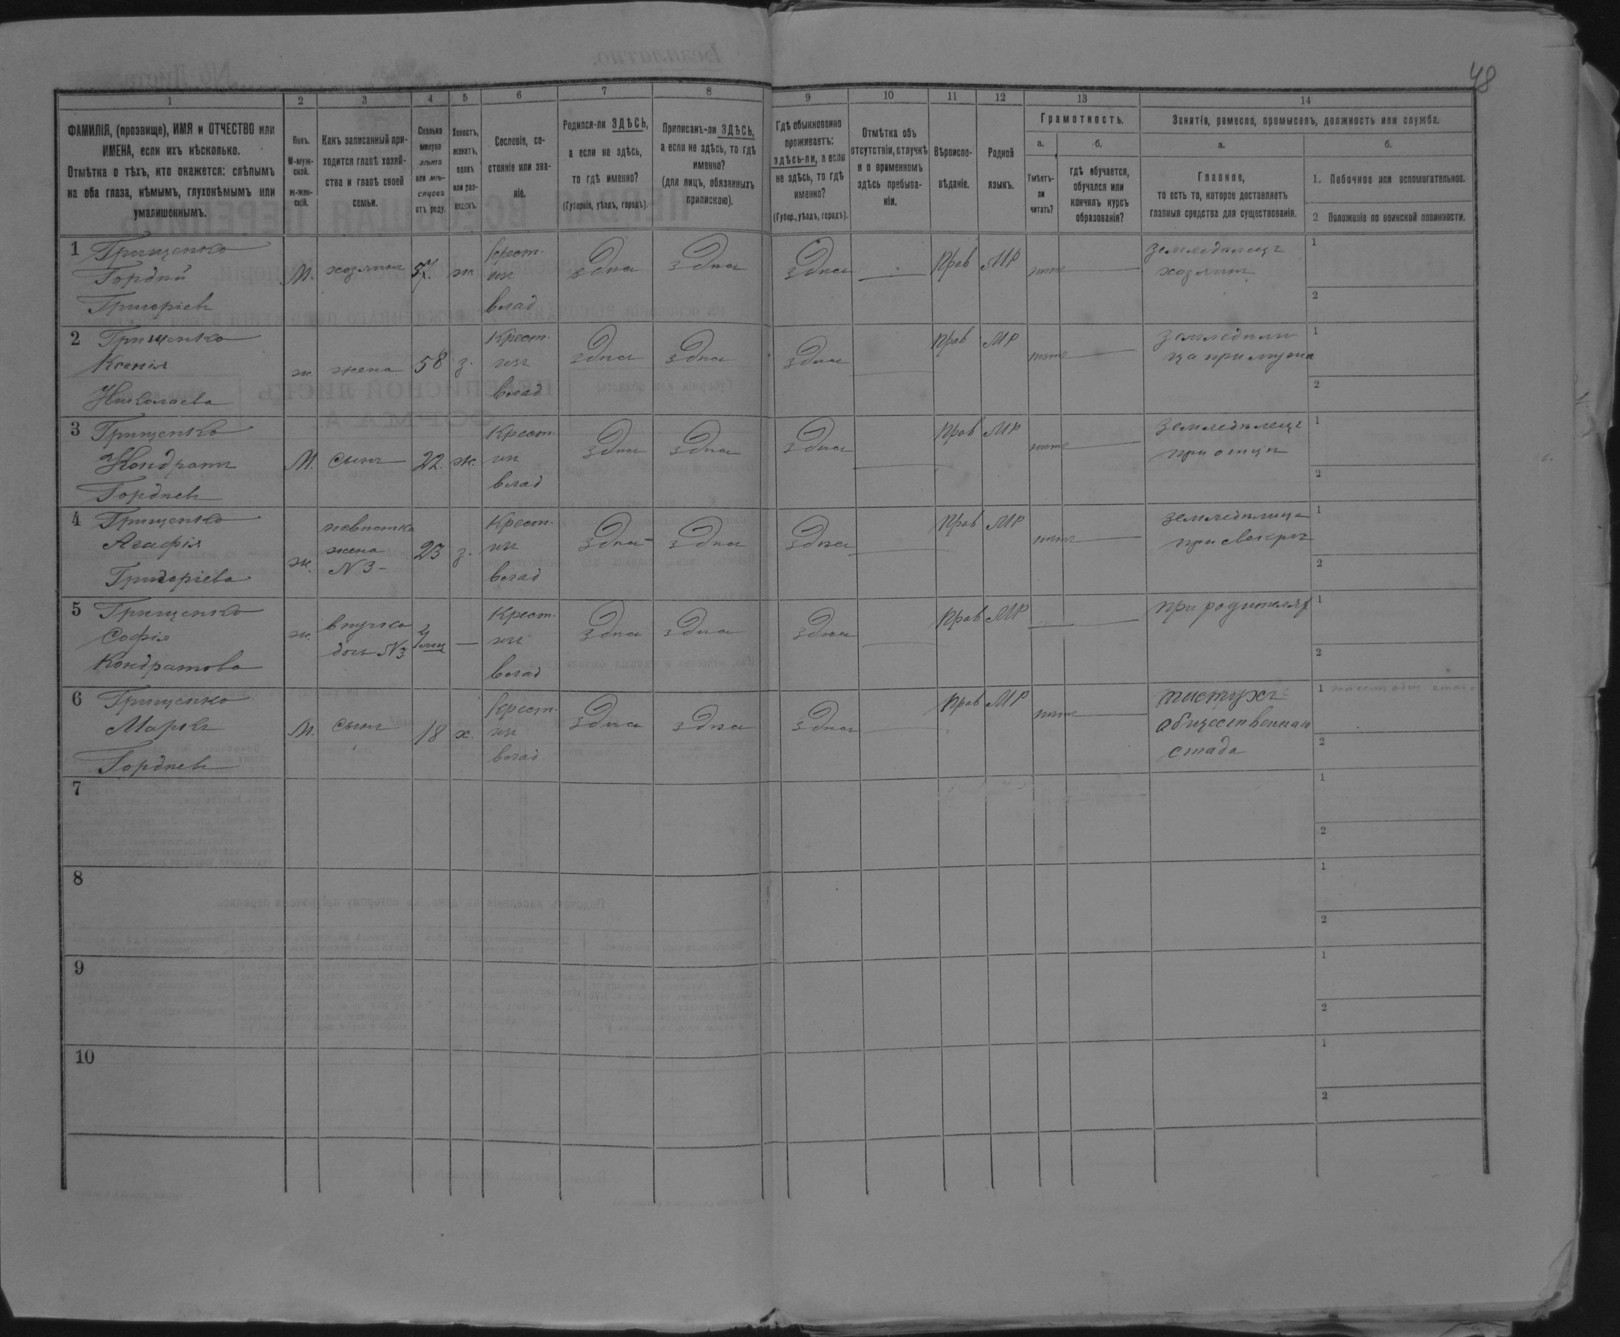 48
1 2 3 4 5 6 7 8 9 10 11 12 13 14
ФАМИЛІЯ, (прозвище), ИМЯ и ОТЧЕСТВО или
ИМЕНА, если ихъ нѣсколько.
Отмѣтка о тѣхъ, кто окажется: слѣпымъ
на оба глаза, нѣмымъ, глухонѣмымъ или
умалишоннымъ.
Полъ.
М-муж-
ской.
ж-жен-
скій.
Какъ записанный при-
ходится главѣ хозяй-
ства и главѣ своей
семьи.
Сколько
минуло
лѣтъ
или мѣ-
сяцевъ
отъ роду.
Холостъ,
женатъ,
вдовъ
или раз-
веденъ.
Сословіе, со-
стояніе или зва-
ніе.
Родился-ли ЗДѢСЬ,
а если не здѣсь,
то гдѣ именно?
(Губернія, уѣздъ, городъ).
Приписанъ-ли ЗДѢСЬ,
а если не здѣсь, то гдѣ
именно?
(для лицъ, обязанныхъ
припискою).
Гдѣ обыкновенно
проживаетъ:
здѣсь-ли, а если
не здѣсь, то гдѣ
именно?
(Губер., уѣздъ, городъ).
Отмѣтка объ
отсутствіи, отлучкѣ
и о временномъ
здѣсь пребыва-
ніи.
Вѣроиспо-
вѣданіе.
Родной
языкъ.
Грамотность.
а.
Умѣетъ-
ли
читать?
б.
гдѣ обучается,
обучался или
кончилъ курсъ
образованія?
Занятія, ремесло, промыселъ, должность или служба.
а.
Главное,
то есть то, которое доставляетъ
главныя средства для существованія.
б.
1. Побочное или вспомогательное.
2 Положеніе по воинской повинности.
1 Грищенко
Гордій
Григоріевъ
М. хозяинъ 57 ж
Крест.
изъ
влад
здѣсь здѣсь здѣсь — Прав МР нѣтъ —
земледѣлецъ
хозяинъ
1
2
2 Грищенко
Ксенія
Николаева
ж. жена 58 з.
Крест.
изъ
влад
здѣсь здѣсь здѣсь — Прав МР нѣтъ —
земледѣли
ца при мужѣ
1
2
3 Грищенко
Кондратъ
Гордѣевъ
М. сынъ 22 ж.
Крест.
изъ
влад
здѣсь здѣсь здѣсь — Прав МР нѣтъ —
земледѣлецъ
при отцѣ
1
2
4 Грищенко
Агафія
Григоріева
ж.
невѣстка
жена
N 3 –
23 з.
Крест.
изъ
влад
здѣсь здѣсь здѣсь — Прав МР нѣтъ —
земледѣлица
при свекрѣ
1
2
5 Грищенко
Софія
Кондратова
ж.
внучка
дочь N 3
мѣц —
Крест.
изъ
влад
здѣсь здѣсь здѣсь — Прав МР —
при родителях
1
2
6 Грищенко
Марко
Гордѣевъ
М. сынъ 18 х.
Крест.
изъ
влад
здѣсь здѣсь здѣсь — Прав МР нѣтъ —
пастухъ
общественнаго
стада
1
2
7
1
2
8
1
2
9
1
2
10
1
2